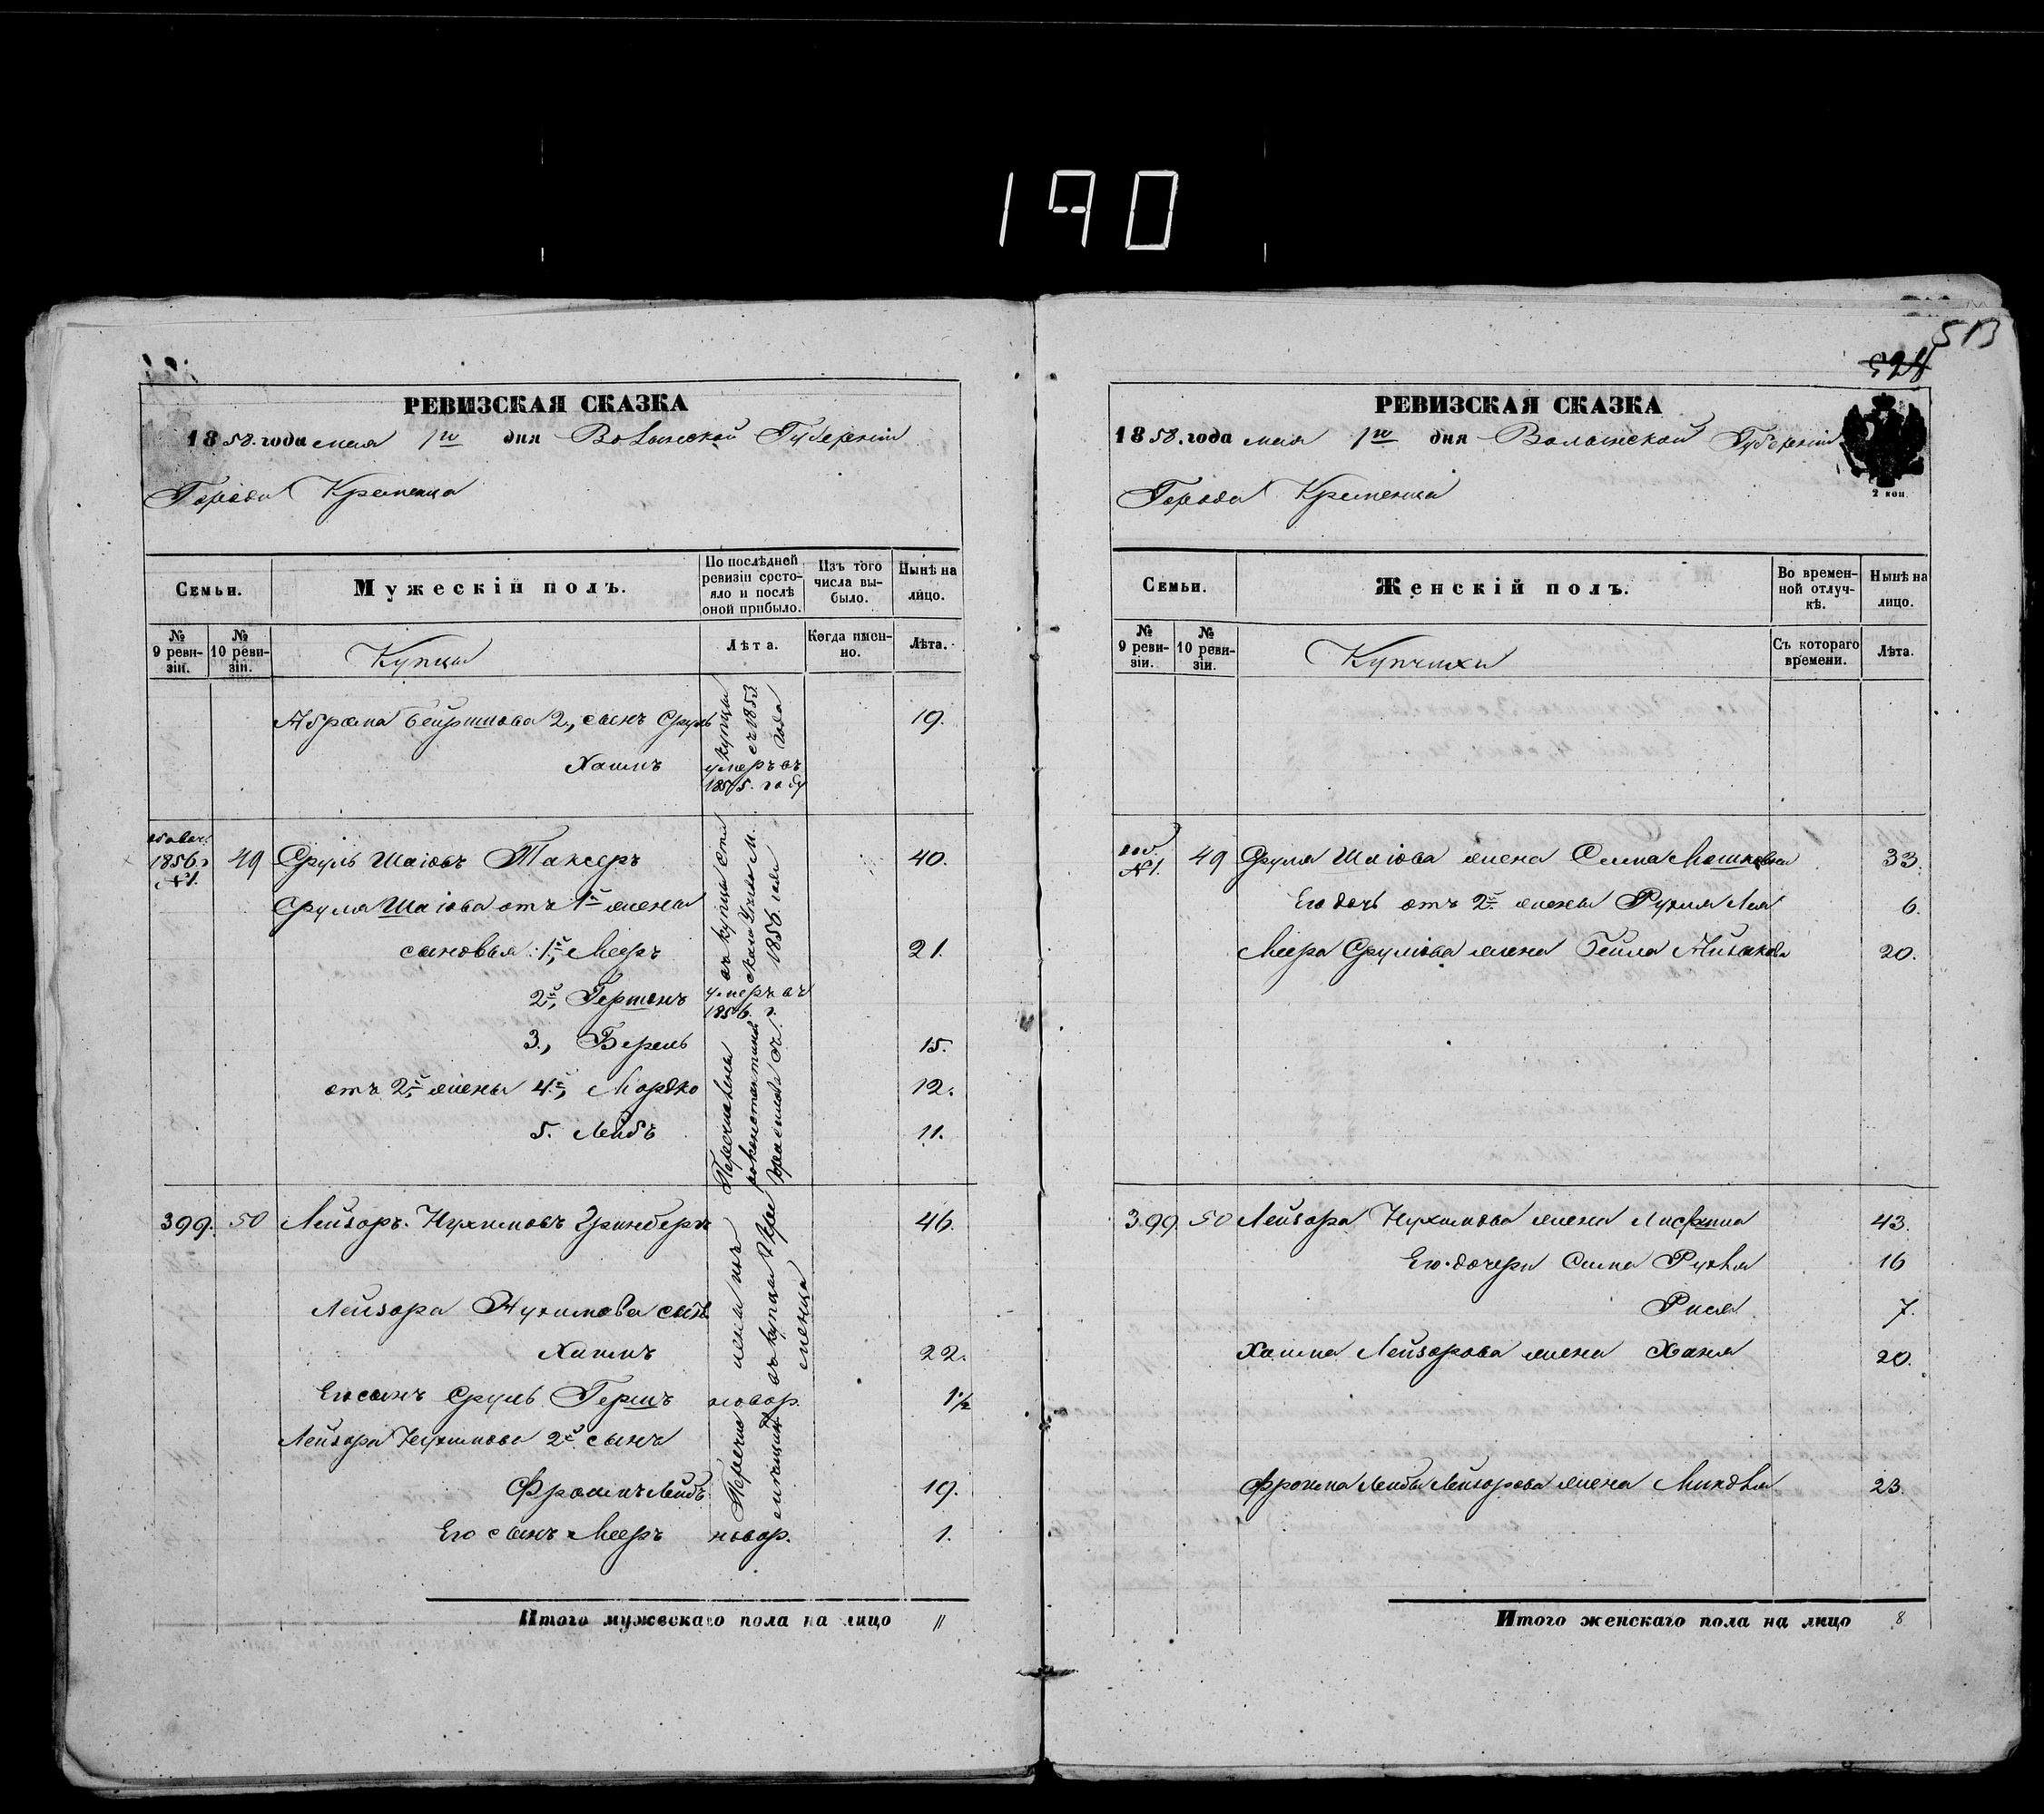 190
РЕВИЗСКАЯ СКАЗКА
1858. года мая 1го дня Волынской Губерніи
Города Кременца
Семьи.
Мужескій полъ.
По послѣдней ревизіи состояло и послѣ оной прибыло.
Изъ того числа выбыло.
Нынѣ на лицо.
№ 9 ревизіи.
№ 10 ревизіи.
Купцы
Лѣта.
Когда именно.
Лѣта.
Абрама 2, сынъ Сруль 19.
купцы съ 1853 года
Хаимъ умеръ въ 1855. году
1856. №1. 49 Сруль Шаіовъ Таксеръ 40.
Сруля Шаіова отъ 1й жены
сыновья: 1й, Мееръ 21.
въ купцы 1856. года
2й, Гершонъ умеръ въ 1856. г.
3., Берель 15.
отъ 2й жены 4й, Мордко 12.
5. Лейбъ 11.
399. 50 Лейзоръ Нухимовъ Гринбергъ 46.
Лейзора Нухимова сынъ
Хаимъ 22.
Его сынъ Сруль Гершъ новор. 1 1/2
Лейзора Нухимова 2й сынъ
Фроимъ Лейбъ 19.
Его сынъ Мееръ новор. 1.
Перечислены изъ купцы Кременца
Итого мужескаго пола на лицо 11
513
524
РЕВИЗСКАЯ СКАЗКА
1858. года мая 1го дня Волынской Губерніи
2 коп.
Города Кременца
Семьи.
Женскій полъ.
Во временной отлучкѣ.
Нынѣ на лицо.
№ 9 ревизіи.
№ 10 ревизіи.
Купчихи
Съ котораго времени.
Лѣта.
№1. 49 Сруля Шаіова жена Сима Мошковна 33.
Его дочь отъ 2й жены Рухля Лея 6.
Меера Срулёва жена Бейла 20.
399 50 Лейзора Нухимова жена 43.
Его дочери Сима Рухля 16
Рися 7.
Хаима Лейзорова жена Ханя 20.
Фроима Лейбы Лейзорова жена Миндля 23.
Итого женскаго пола на лицо 8